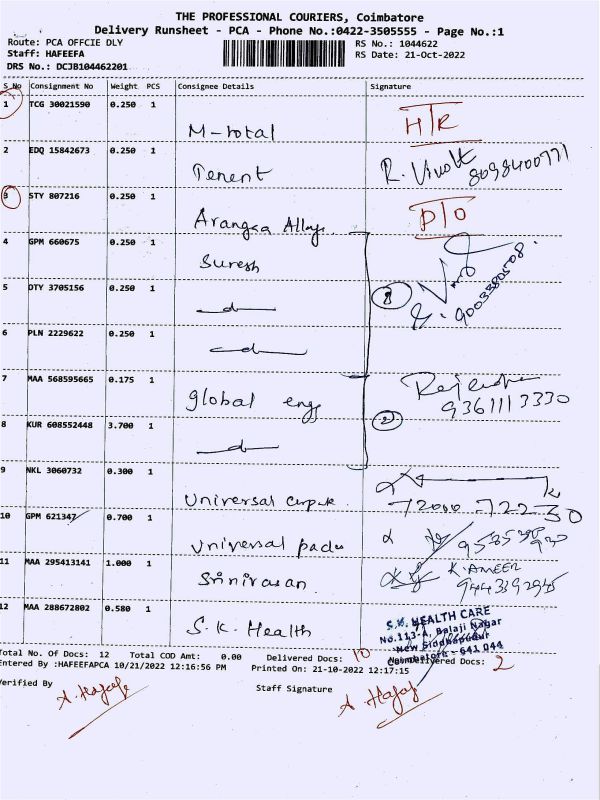 THE PROFESSIONAL COURIERS, Coimbatore
Delivery Runsheet - PCA - Phone No.:0422-3505555 - Page No.:1
Route: PCA OFFCIE DLY
RS No.: 1044622
Staff: HAFEEFA
RS Date: 21-Oct-2022
DRS No.: DCJB104462201
S No Consignment No Weight PCS Consignee Details Signature
1 TCG 30021590 0.250 1 M-total H/R
2 EDQ 15842673 0.250 1 Tenent R. 8098400771
3 STY 807216 0.250 1 D/O
4 GPM 660675 0.250 1 Suresh
5 OTY 3705156 0.250 1 9003380508.
6 PLN 2229622 0.250 1
7 MAA 568595665 0.175 1 global engg 9361113330
8 KUR 608552448 3.700 1
9 NKL 3060732 0.300 1 universal 72000 - 72230
10 GPM 621347 0.700 1 universal
11 MAA 295413141 1.000 1 Srinivasan K. AMEER
12 MAA 288672802 0.580 1 S.K. Health
S.K. HEALTH CARE
No.113-A, Balaji Nagar
New Siddhapudur
Coimbatore - 641 044
Total No. Of Docs: 12 Total COD Amt: 0.00 Delivered Docs: 10 Undelivered Docs: 2
Entered By :HAFEEFAPCA 10/21/2022 12:16:56 PM Printed On: 21-10-2022 12:17:15
Verified By Staff Signature